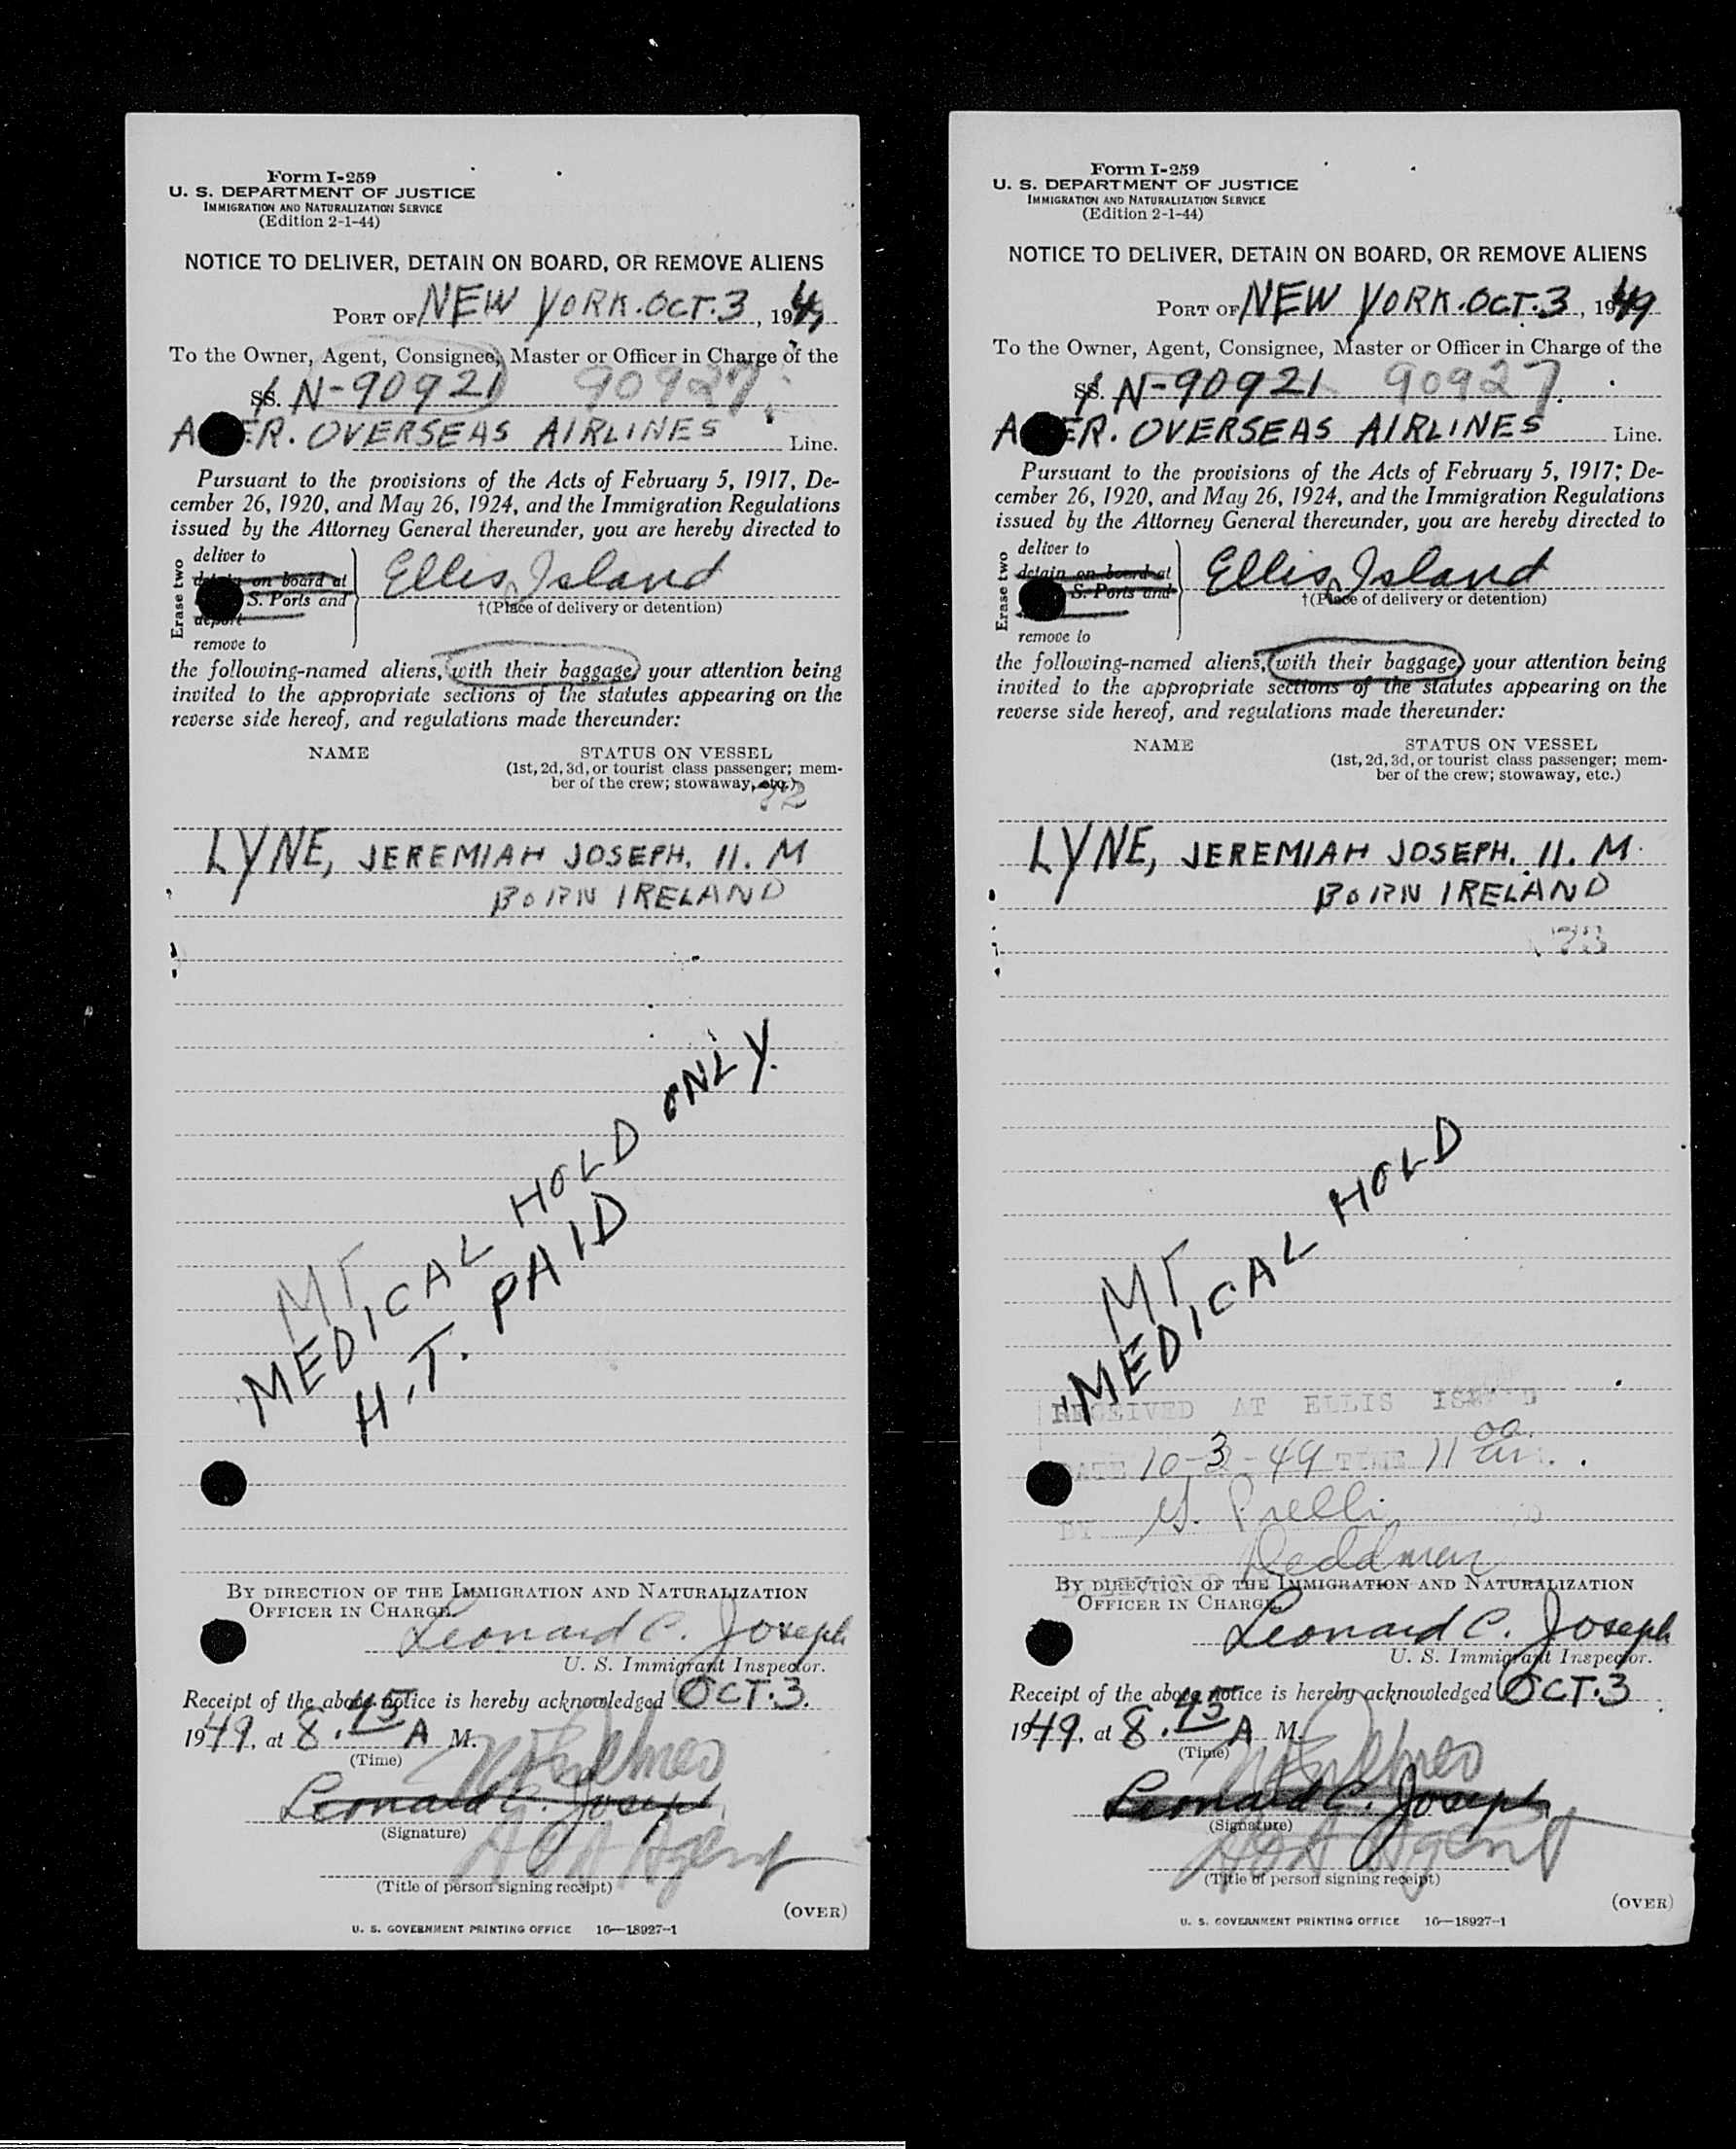 Form I-259
U. S. DEPARTMENT OF JUSTICE
IMMIGRATION AND NATURALIZATION SERVICE
(Edition 2-1-44)
NOTICE TO DELIVER, DETAIN ON BOARD, OR REMOVE ALIENS
PORT OF NEW YORK. OCT. 3, 1949
To the Owner, Agent, Consignee, Master or Officer in Charge of the
SS. N-90921 90927.
A ER. OVERSEAS AIRLINES Line.
Pursuant to the provisions of the Acts of February 5, 1917, De-
cember 26, 1920, and May 26, 1924, and the Immigration Regulations
issued by the Attorney General thereunder, you are hereby directed to
Erase two
deliver to
detain on board at
S. Ports and
deport
remove to
Ellis Island
†(Place of delivery or detention)
the following-named aliens, with their baggage, your attention being
invited to the appropriate sections of the statutes appearing on the
reverse side hereof, and regulations made thereunder:
NAME STATUS ON VESSEL
(1st, 2d, 3d, or tourist class passenger; mem-
ber of the crew; stowaway, etc.)
LYNE, JEREMIAH JOSEPH. 11. M
BORN IRELAND
MEDICAL HOLD ONLY.
H.T. PAID
BY DIRECTION OF THE IMMIGRATION AND NATURALIZATION
OFFICER IN CHARGE.
Leonard C. Joseph
U. S. Immigrant Inspector.
Receipt of the above notice is hereby acknowledged OCT. 3.
1949, at 8.45 A M.
(Time)
Leonard C. Joseph
(Signature)
AOA Agent
(Title of person signing receipt)
(OVER)
U. S. GOVERNMENT PRINTING OFFICE 16—18927-1
Form I-259
U. S. DEPARTMENT OF JUSTICE
IMMIGRATION AND NATURALIZATION SERVICE
(Edition 2-1-44)
NOTICE TO DELIVER, DETAIN ON BOARD, OR REMOVE ALIENS
PORT OF NEW YORK. OCT. 3, 1949
To the Owner, Agent, Consignee, Master or Officer in Charge of the
SS. N-90921 90927.
A ER. OVERSEAS AIRLINES Line.
Pursuant to the provisions of the Acts of February 5, 1917; De-
cember 26, 1920, and May 26, 1924, and the Immigration Regulations
issued by the Attorney General thereunder, you are hereby directed to
Erase two
deliver to
detain on board at
S. Ports and
remove to
Ellis Island
†(Place of delivery or detention)
the following-named aliens, with their baggage, your attention being
invited to the appropriate sections of the statutes appearing on the
reverse side hereof, and regulations made thereunder:
NAME STATUS ON VESSEL
(1st, 2d, 3d, or tourist class passenger; mem-
ber of the crew; stowaway, etc.)
LYNE, JEREMIAH JOSEPH. 11. M.
BORN IRELAND
MEDICAL HOLD
RECEIVED AT ELLIS ISLAND
DATE 10-3-49 TIME 11 00
BY
BY DIRECTION OF THE IMMIGRATION AND NATURALIZATION
OFFICER IN CHARGE.
Leonard C. Joseph
U. S. Immigrant Inspector.
Receipt of the above notice is hereby acknowledged OCT. 3
1949, at 8.45 A M.
(Time)
Leonard C. Joseph
(Signature)
AOA Agent
(Title of person signing receipt)
(OVER)
U. S. GOVERNMENT PRINTING OFFICE 16—18927-1